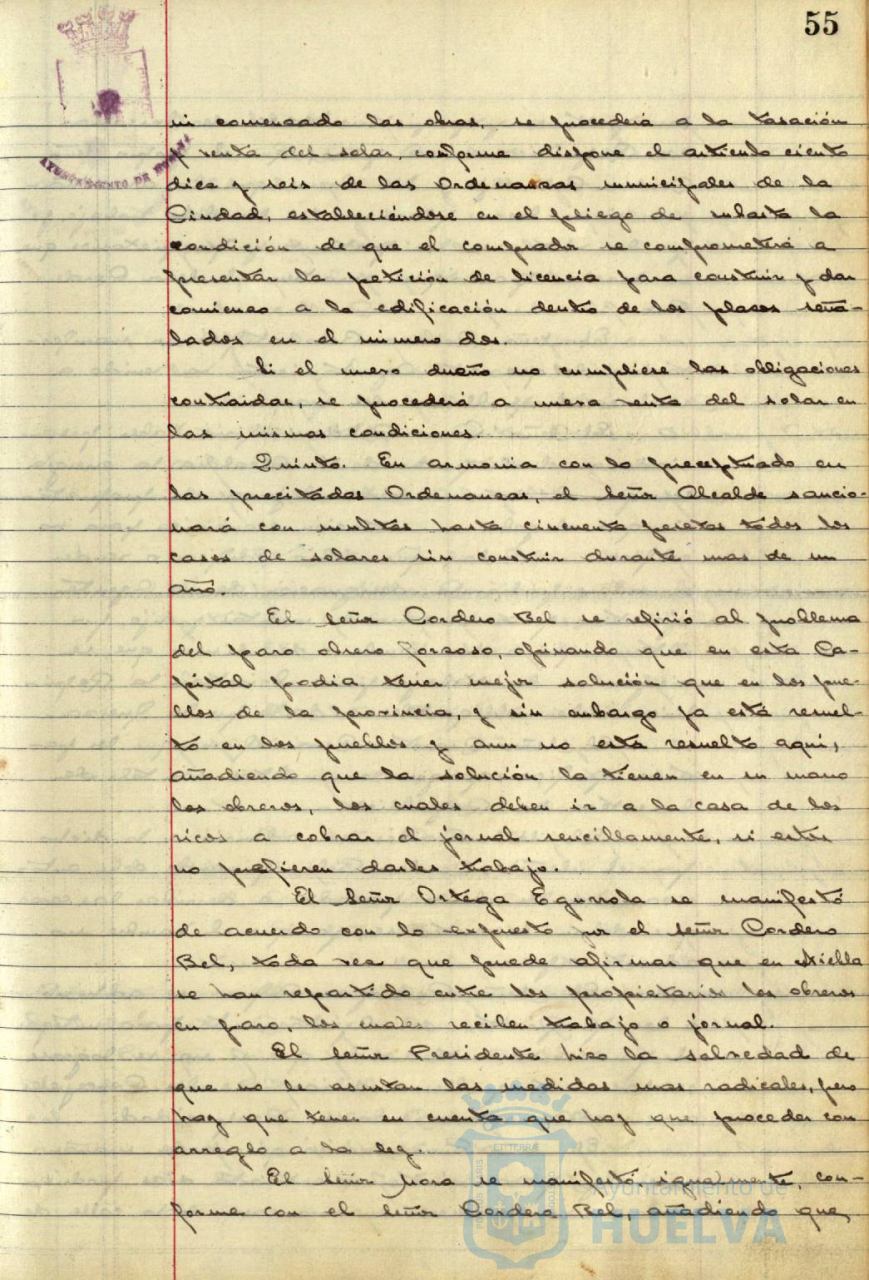 55
AYUNTAMIENTO DE HUELVA
ni comenzado las obras, se procederá a la tasación
y venta del solar, conforme dispone el artículo ciento
diez y seis de las Ordenanzas municipales de la
Ciudad, estableciéndose en el pliego de subasta la
condición de que el comprador se comprometerá a
presentar la petición de licencia para construir y dar
comienzo a la edificación dentro de los plazos seña-
lados en el número dos.
Si el nuevo dueño no cumpliese las obligaciones
contraidas, se procederá a nueva venta del solar en
las mismas condiciones.
Quinto. En armonia con lo preceptuado en
las precitadas Ordenanzas, el Señor Alcalde sancio-
nará con multas hasta cincuenta pesetas todos los
casos de solares sin construir durante mas de un
año.
El Señor Cordero Bel se refirió al problema
del paro obrero forzoso, opinando que en esta Ca-
pital podia tener mejor solución que en los pue-
blos de la provincia, y sin embargo ya está resuel-
to en los pueblos y aun no está resuelto aquí,
añadiendo que la solución la tienen en su mano
los obreros, los cuales deben ir a la casa de los
ricos a cobrar el jornal sencillamente, si estos
no prefieren darles trabajo.
El Señor Ortega Egurrola se manifestó
de acuerdo con lo expuesto por el señor Cordero
Bel, toda vez que puede afirmar que en Niebla
se han repartido entre los propietarios los obreros
en paro, los cuales reciben trabajo o jornal.
El Señor Presidente hizo la salvedad de
que no le asustan las medidas mas radicales, pero
hay que tener en cuenta que hay que proceder con
arreglo a la ley.
El Señor Mora se manifestó, igualmente, con-
forme con el Señor Cordero Bel, añadiendo que,
Ayuntamiento de
HUELVA